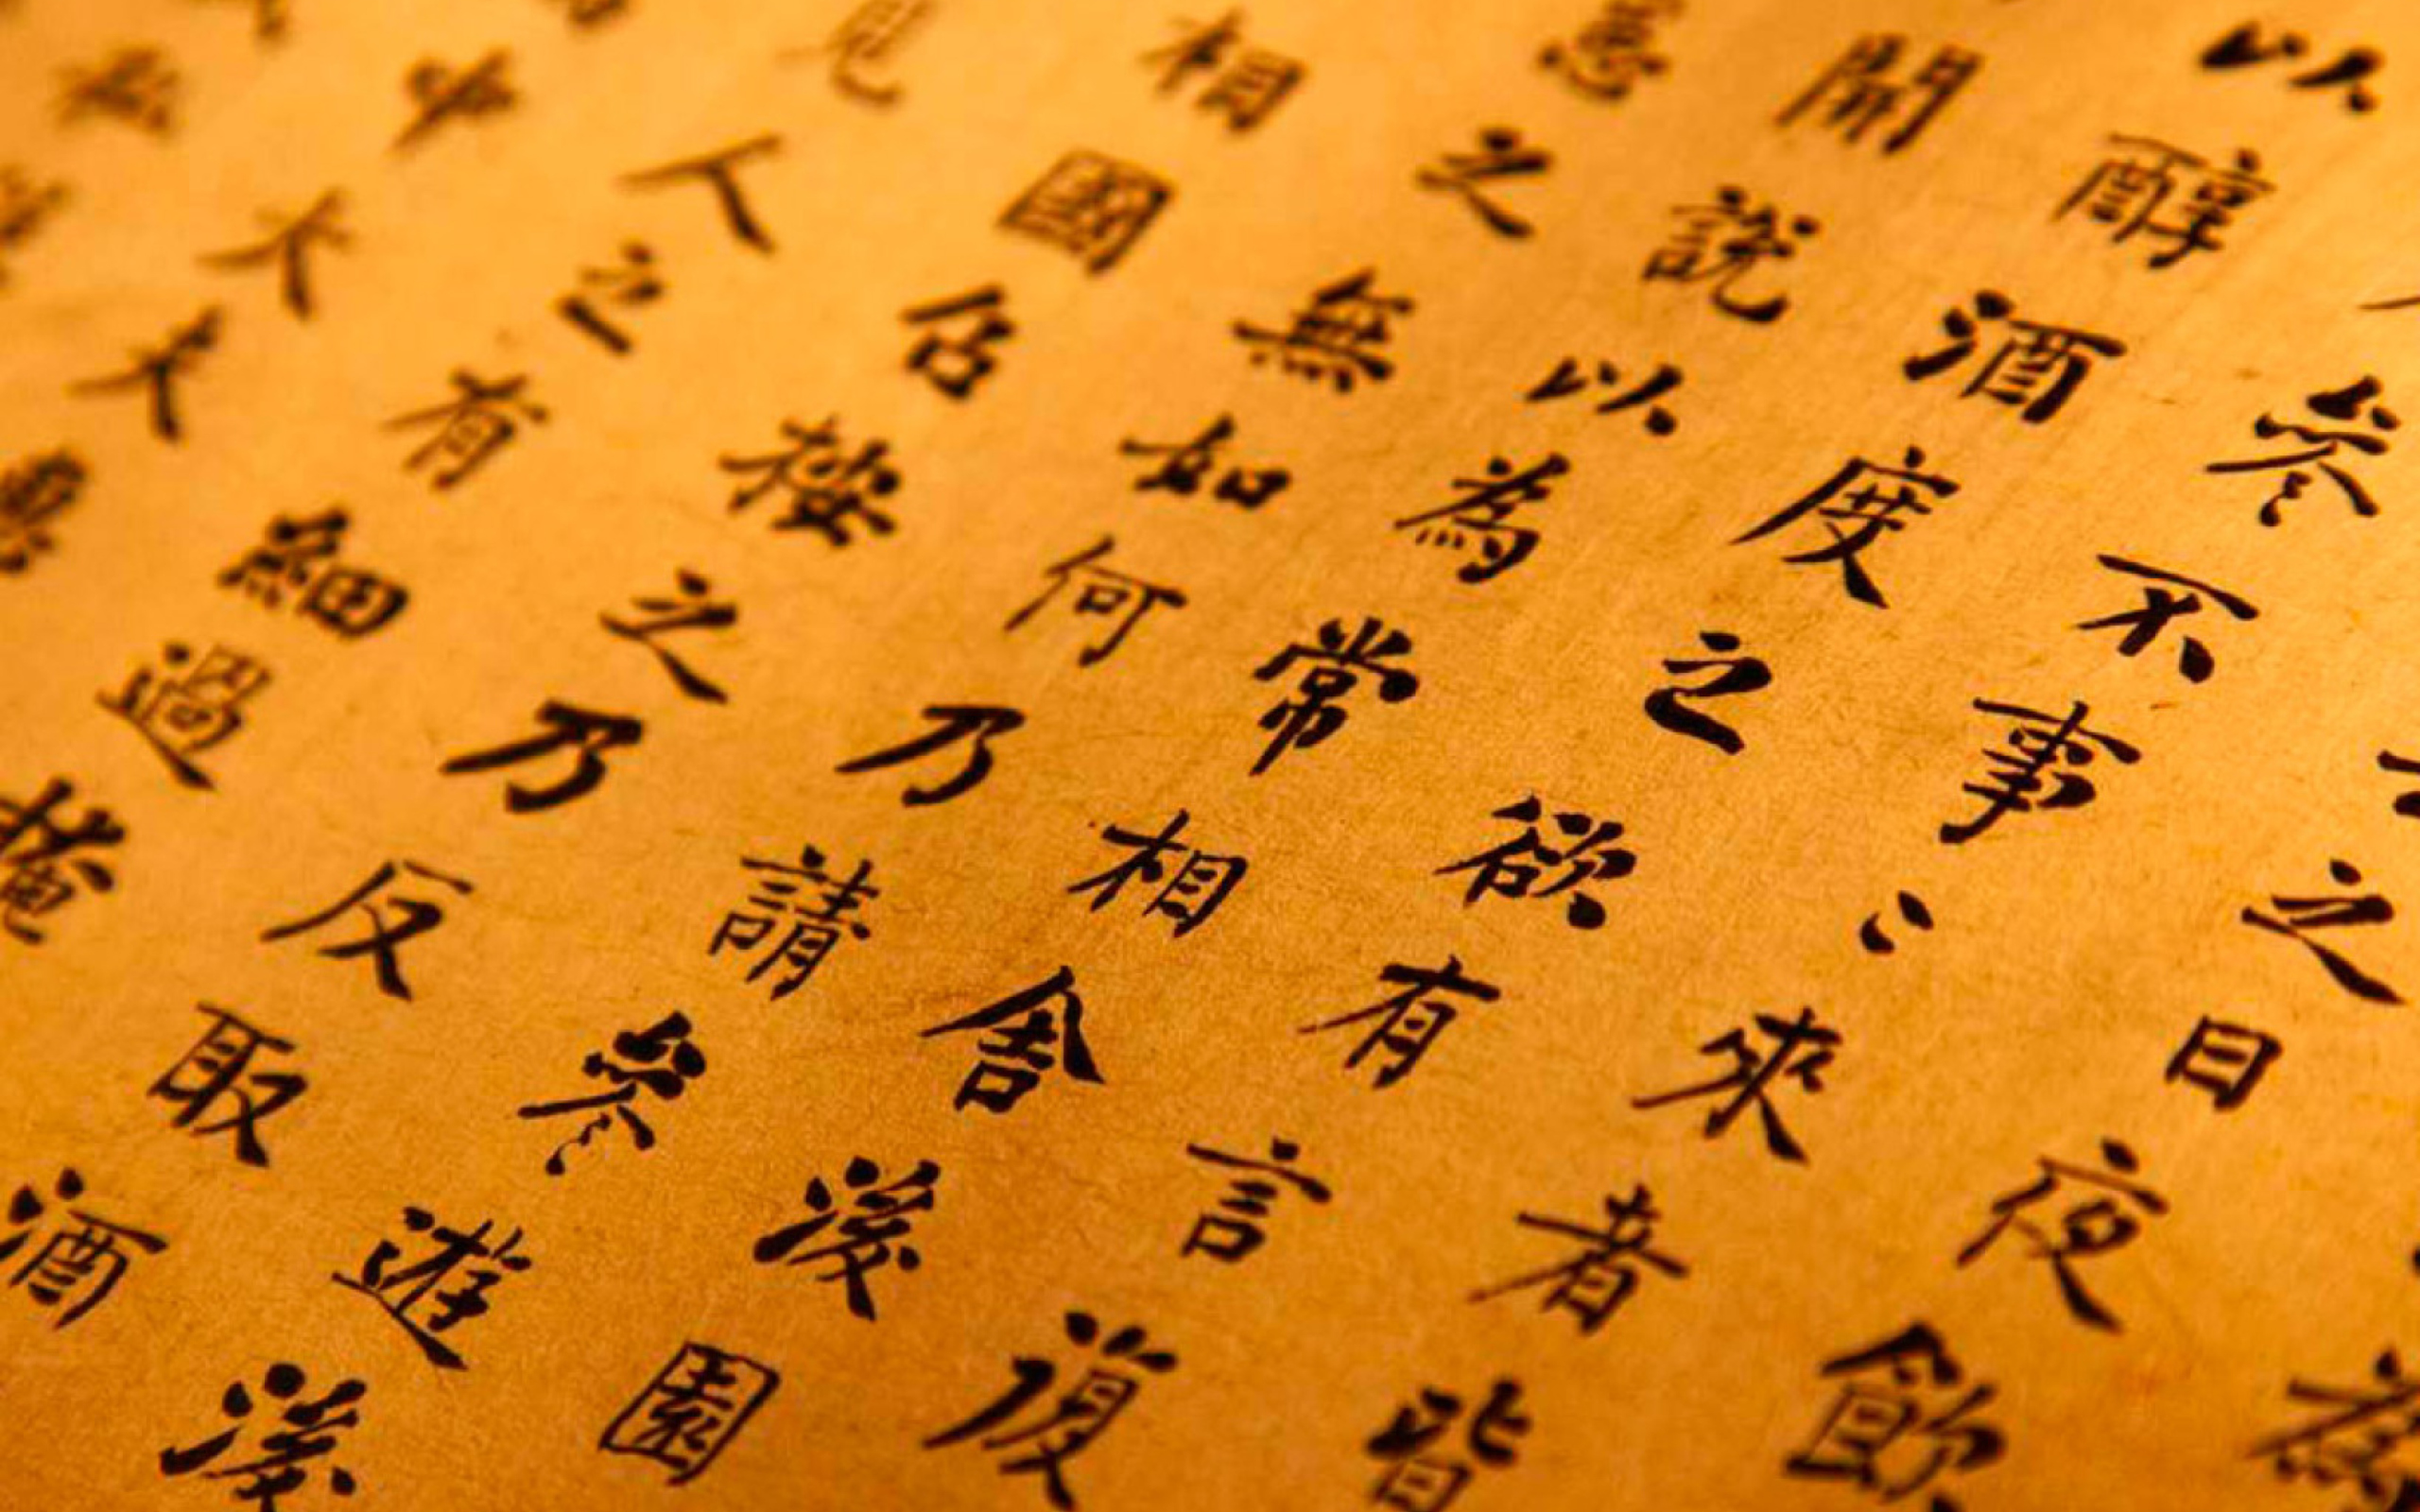 之日夜飲
參不事〻來者皆
以醇酒度之欲有言復
開說以為常相舍後園
惡之無如何乃請參遊後
相國召按之乃反取酒
見人之有細過掩
中大夫